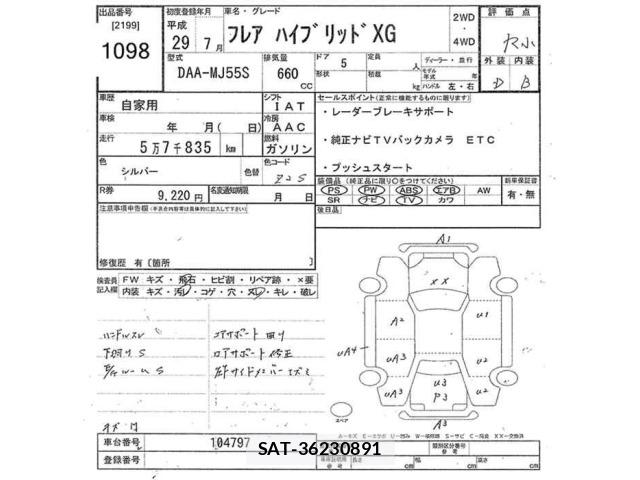 出品番号 初度登録年月 車名・グレード 2WD 評価点
[2199] 平成 フレア ハイブリッドXG ・
1098 29年 7月 4WD
型式 排気量 ドア 5 定員 人 ディーラー・並行 外装 内装
DAA-MJ55S 660 CC 形状 積載 kg モデル年式 年 D B
ハンドル 左・右
車歴 自家用 シフト IAT セールスポイント(正常に機能するものに限ります)
車検 年 月( 日) 冷房 AAC ・レーダーブレーキサポート
走行 5万7千835 km 燃料 ガソリン ・純正ナビTVバックカメラ ETC
色 シルバー 色替 色コード Z2S ・プッシュスタート
R券 9,220円 名変通知期限 月 日 装備品(純正品に限り○をつけてください) 新車保証書
PS PW ABS エアB AW 有・無
SR ナビ TV カワ
注意事項申告欄 後日品
修復歴 有〔箇所 〕
検査員記入欄 FW キズ・飛石・ヒビ割・リペア跡・×要
内装 キズ・汚レ・コゲ・穴・スレ・キレ・破レ
A1
XX
A2 U1
UA4 UA3 U2
UA3 U3 U2
P3
A3
ハンドルスレ コアサポート曲り
下回りS ロアサポート修正
スペア
車台番号 104797
登録番号
SAT-36230891
A-キズ E-エクボ U-凹み W-補修跡 S-サビ C-腐食 XX-交換済
類別区分番号
参考 長さ cm 幅 cm 高さ cm